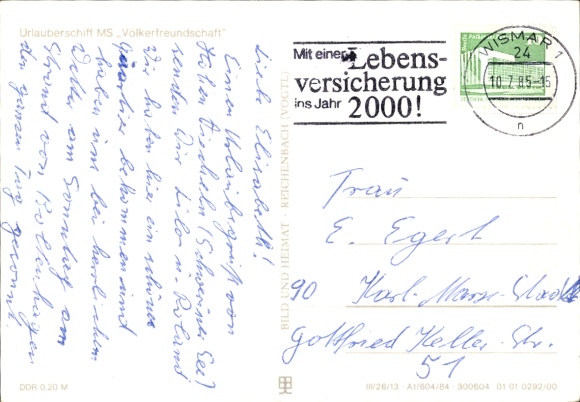 Urlauberschiff MS „Völkerfreundschaft"
Liebe Elisabeth!
Einen Urlaubsgruß von
Hohen Viecheln (Schweriner See)
senden Dir Lilo u. Roland
Wir haben hier ein schönes
Quartier bekommen und
haben uns bei herrlichem
Wetter am Sonntag am
Strand von Boltenhagen
den ganzen Tag gesonnt.
DDR 0,20 M
BILD UND HEIMAT · REICHENBACH (VOGTL)
Mit einer Lebens-
versicherung
ins Jahr 2000!
WISMAR 1
24
10.7.85-15
n
Frau
E. Egert
90 Karl-Marx-Stadt
Gottfried Keller-Str.
51
III/26/13 · A1/604/84 · 300604 01 01 0292/00